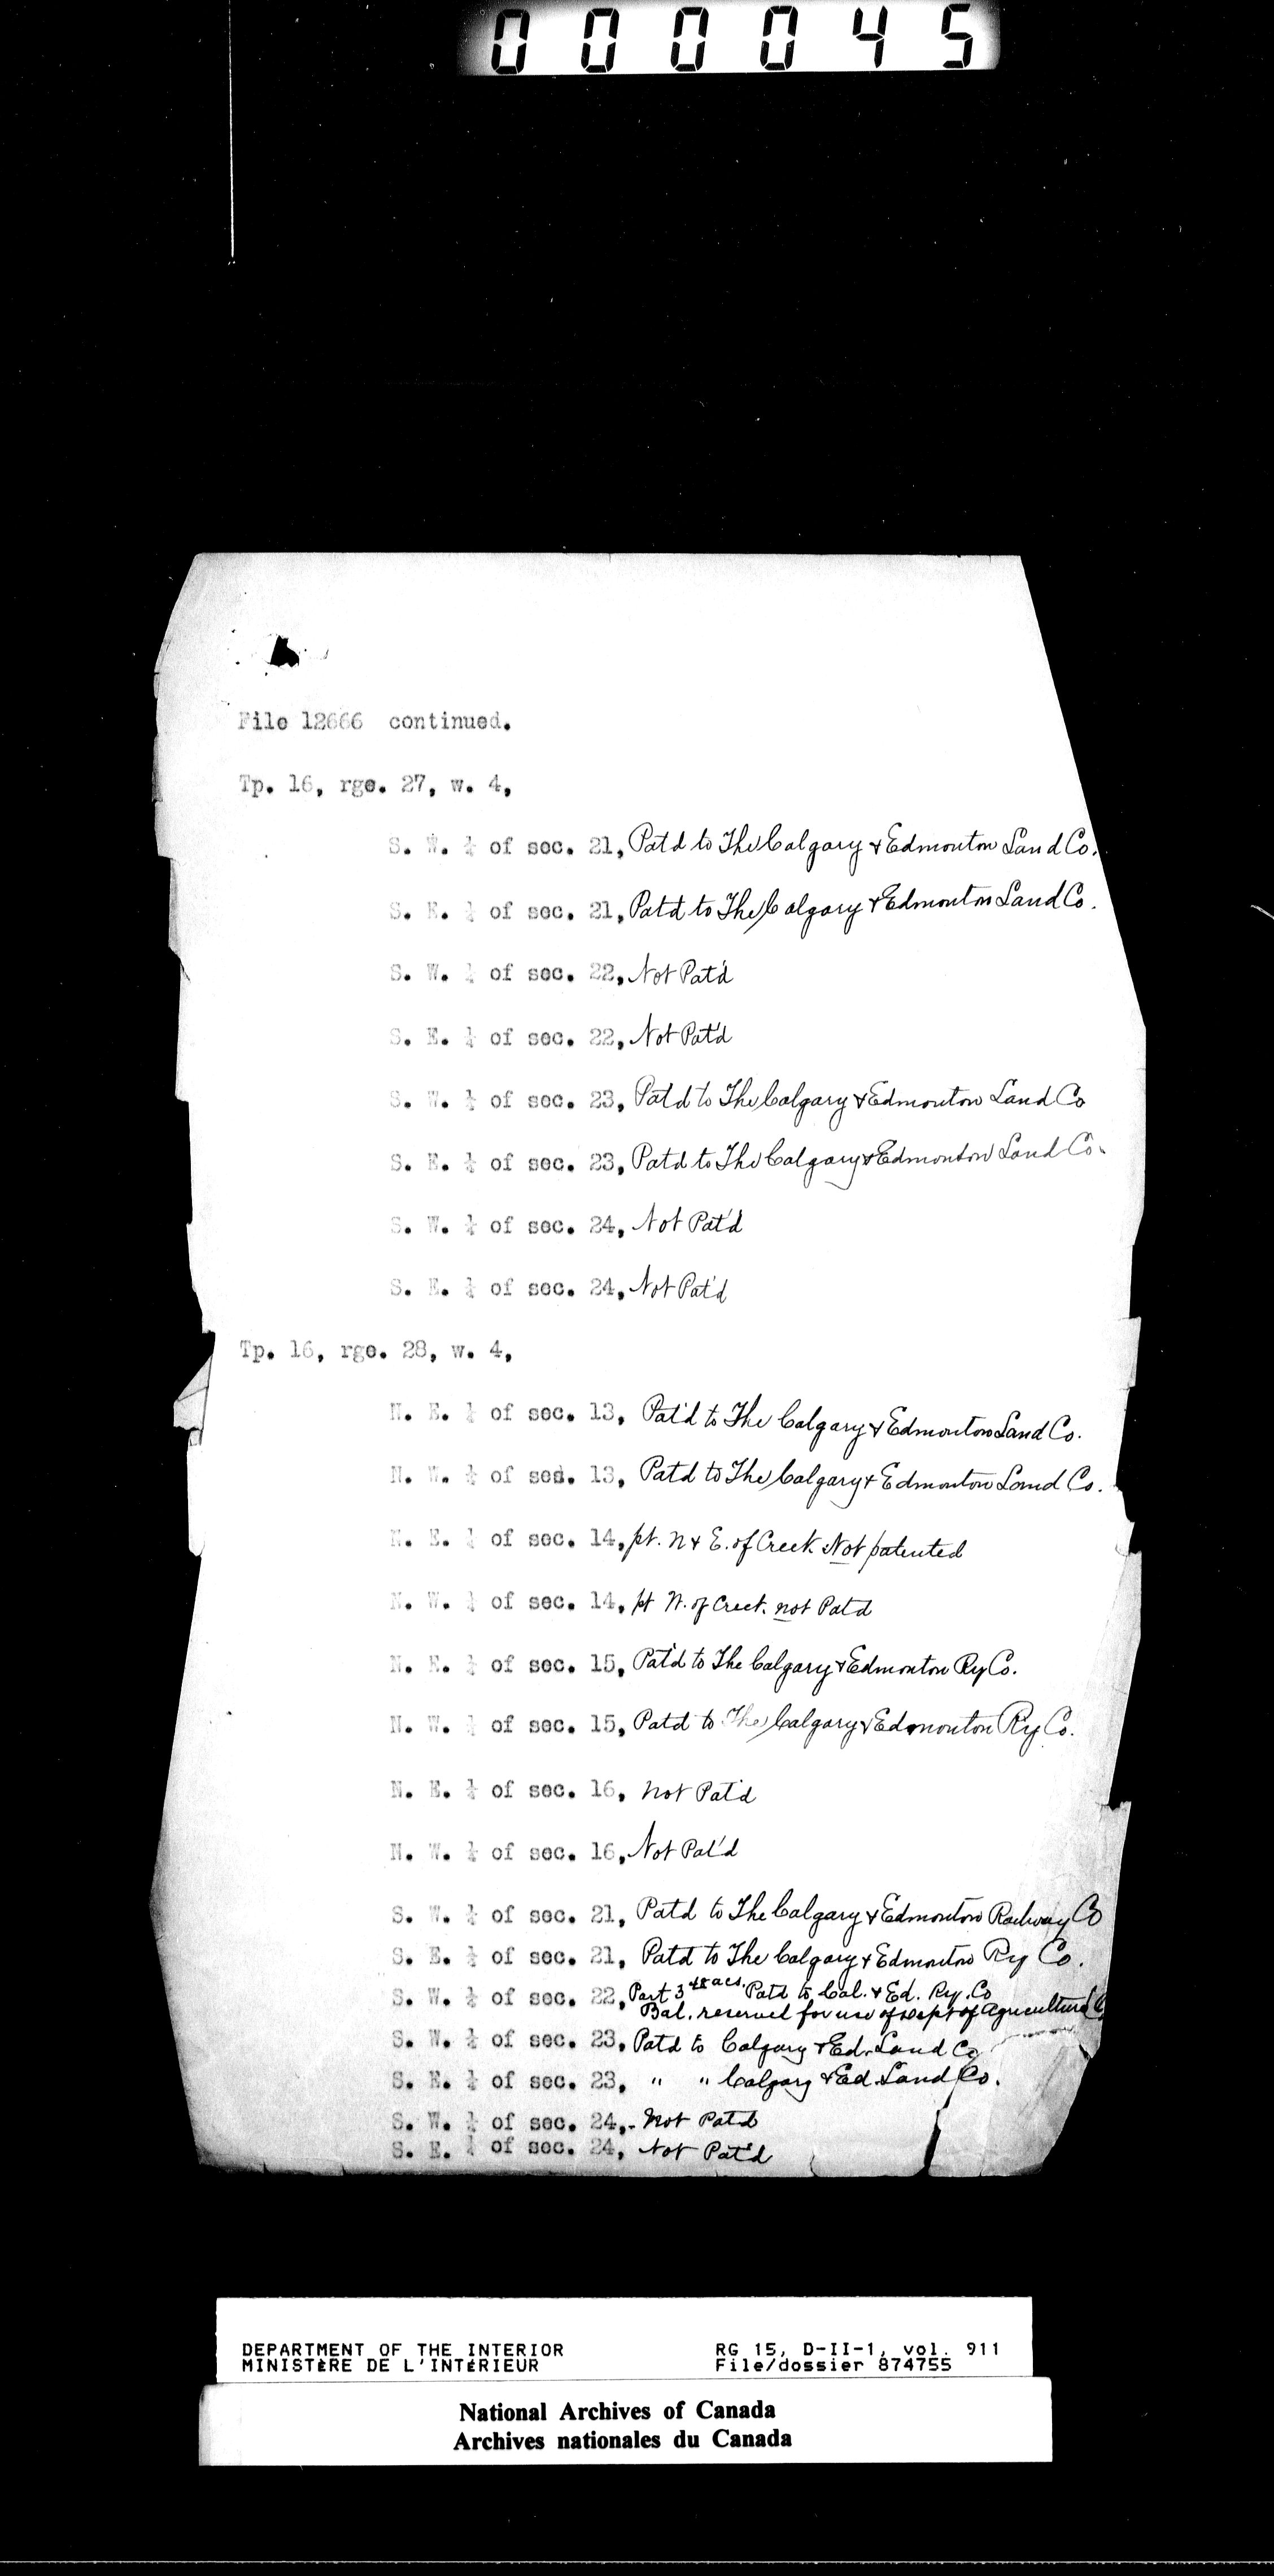 000045
File 12666 continued.
Tp. 16, rge. 27, w. 4,
S. W. ¼ of sec. 21, Pat'd to The Calgary & Edmonton Land Co.
S. E. ¼ of sec. 21, Pat'd to The Calgary & Edmonton Land Co.
S. W. ¼ of sec. 22, Not Pat'd
S. E. ¼ of sec. 22, Not Pat'd
S. W. ¼ of sec. 23, Pat'd to The Calgary & Edmonton Land Co
S. E. ¼ of sec. 23, Pat'd to The Calgary & Edmonton Land Co.
S. W. ¼ of sec. 24, Not Pat'd
S. E. ¼ of sec. 24, Not Pat'd
Tp. 16, rge. 28, w. 4,
N. E. ¼ of sec. 13, Pat'd to The Calgary & Edmonton Land Co.
N. W. ¼ of sec. 13, Pat'd to The Calgary & Edmonton Land Co.
N. E. ¼ of sec. 14, pt. N & E. of Creek Not patented
N. W. ¼ of sec. 14, pt N. of Creek. not Pat'd
N. E. ¼ of sec. 15, Pat'd to The Calgary & Edmonton Ry Co.
N. W. ¼ of sec. 15, Pat'd to The Calgary & Edmonton Ry Co.
N. E. ¼ of sec. 16, Not Pat'd
N. W. ¼ of sec. 16, Not Pat'd
S. W. ¼ of sec. 21, Pat'd to The Calgary & Edmonton Railway Co
S. E. ¼ of sec. 21, Pat'd to The Calgary & Edmonton Ry Co.
S. W. ¼ of sec. 22, Part 3 acs. Patd to Cal. & Ed. Ry. Co
Bal. reserved for use of Dept of Agriculture
S. W. ¼ of sec. 23, Patd to Calgary & Ed. Land Co
S. E. ¼ of sec. 23, " " Calgary & Ed. Land Co.
S. W. ¼ of sec. 24, - Not Patd
S. E. ¼ of sec. 24, Not Pat'd
DEPARTMENT OF THE INTERIOR RG 15, D-II-1, vol. 911
MINISTÈRE DE L'INTÉRIEUR File/dossier 874755
National Archives of Canada
Archives nationales du Canada